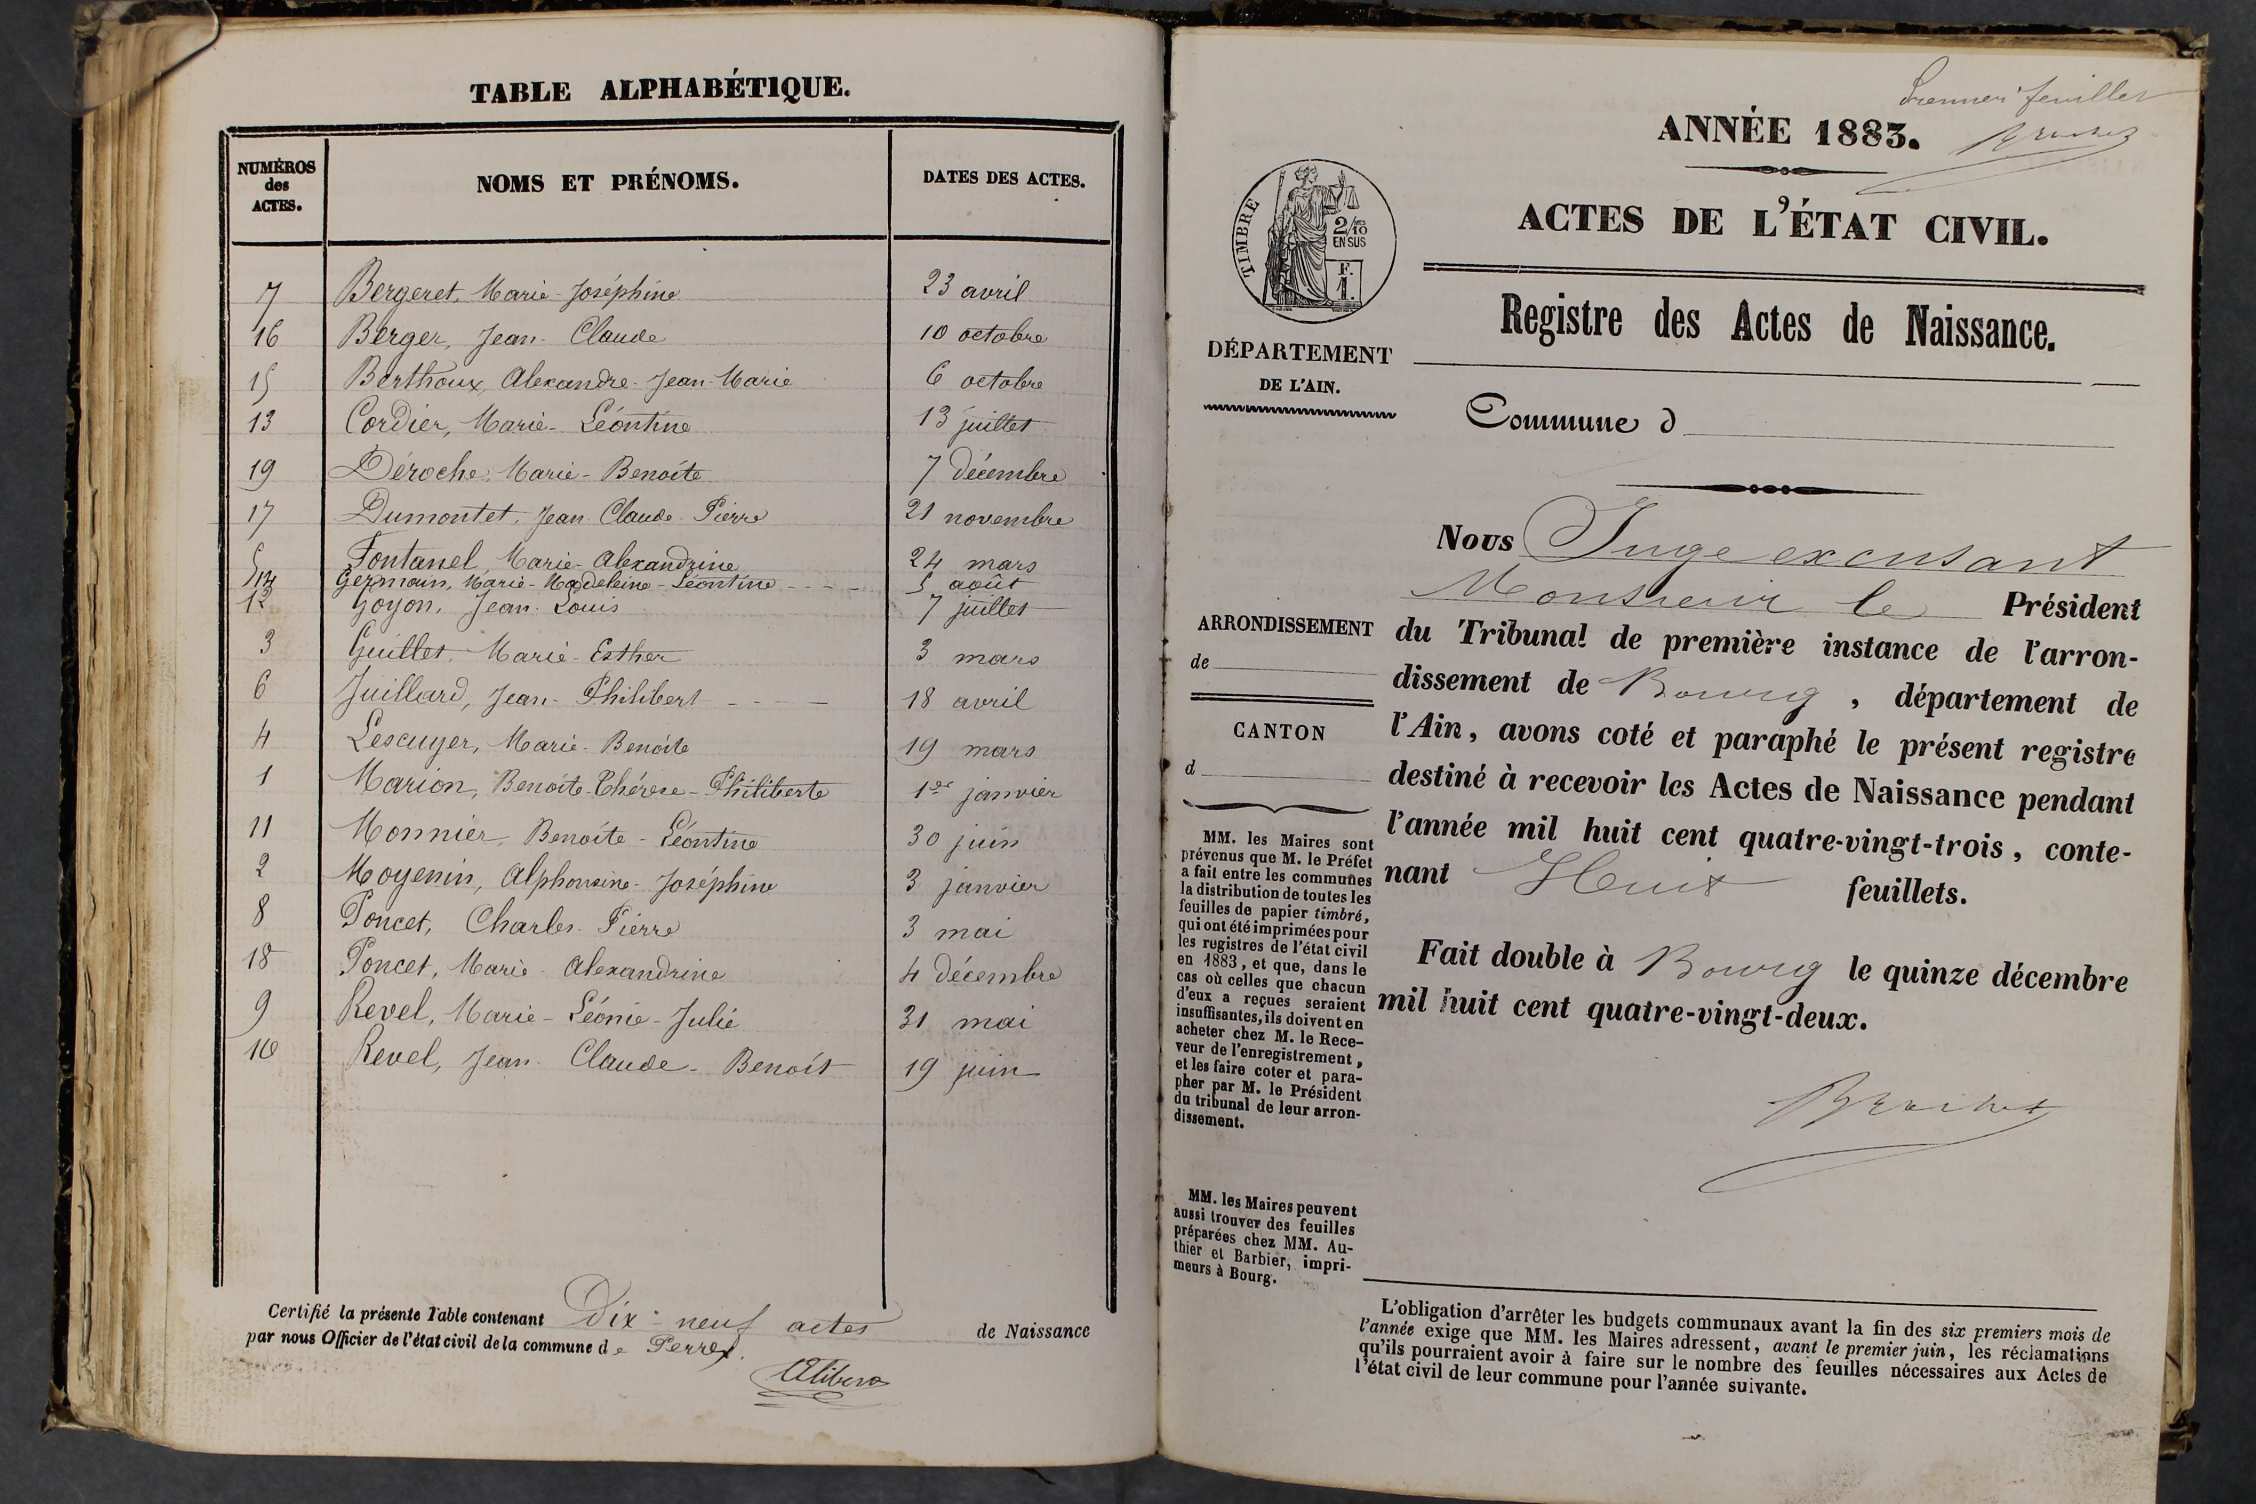 TABLE ALPHABÉTIQUE.
NUMÉROS des ACTES. NOMS ET PRÉNOMS. DATES DES ACTES.
7 Bergeret, Marie-Joséphine 23 avril
16 Berger, Jean-Claude 10 octobre
15 Berthoux, Alexandre-Jean-Marie 6 octobre
13 Cordier, Marie-Léontine 13 juillet
19 Déroche, Marie-Benoite 7 décembre
17 Dumontet, Jean-Claude-Pierre 21 novembre
5 Fontanel, Marie-Alexandrine 24 mars
14 Germain, Marie-Madeleine-Léontine 5 août
12 Goyon, Jean-Louis 7 juillet
3 Guillet, Marie-Esther 3 mars
6 Juillard, Jean-Philibert 18 avril
4 Lescuyer, Marie-Benoite 19 mars
1 Marion, Benoite-Thérèse-Philiberte 1er janvier
11 Monnier, Benoite-Léontine 30 juin
2 Moyenin, Alphonsine-Joséphine 3 janvier
8 Poncet, Charles-Pierre 3 mai
18 Poncet, Marie-Alexandrine 4 décembre
9 Revel, Marie-Léonie-Julie 31 mai
10 Revel, Jean-Claude-Benoit 19 juin
Certifié la présente Table contenant Dix-neuf actes de Naissance
par nous Officier de l'état civil de la commune de Perrex.
Premier feuillet
ANNÉE 1883.
ACTES DE L'ÉTAT CIVIL.
TIMBRE
2/10 EN SUS
F. 1.
Registre des Actes de Naissance.
DÉPARTEMENT
DE L'AIN.
Commune d
Nous Juge excusant
Monsieur le Président
du Tribunal de première instance de l'arron-
dissement de Bourg, département de
l'Ain, avons coté et paraphé le présent registre
destiné à recevoir les Actes de Naissance pendant
l'année mil huit cent quatre-vingt-trois, conte-
nant Huit feuillets.
Fait double à Bourg le quinze décembre
mil huit cent quatre-vingt-deux.
ARRONDISSEMENT
de
CANTON
d
MM. les Maires sont
prévenus que M. le Préfet
a fait entre les communes
la distribution de toutes les
feuilles de papier timbré,
qui ont été imprimées pour
les registres de l'état civil
en 1883, et que, dans le
cas où celles que chacun
d'eux a reçues seraient
insuffisantes, ils doivent en
acheter chez M. le Rece-
veur de l'enregistrement,
et les faire coter et para-
pher par M. le Président
du tribunal de leur arron-
dissement.
MM. les Maires peuvent
aussi trouver des feuilles
préparées chez MM. Au-
thier et Barbier, impri-
meurs à Bourg.
L'obligation d'arrêter les budgets communaux avant la fin des six premiers mois de
l'année exige que MM. les Maires adressent, avant le premier juin, les réclamations
qu'ils pourraient avoir à faire sur le nombre des feuilles nécessaires aux Actes de
l'état civil de leur commune pour l'année suivante.